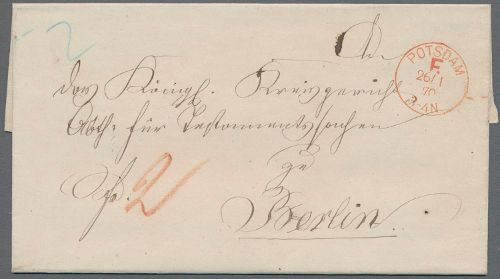 2
An
POTSDAM
F
26/1
70
3-4N
das Königl. Kreisgericht
Abth: für Testamentssachen
zu
2
Berlin.